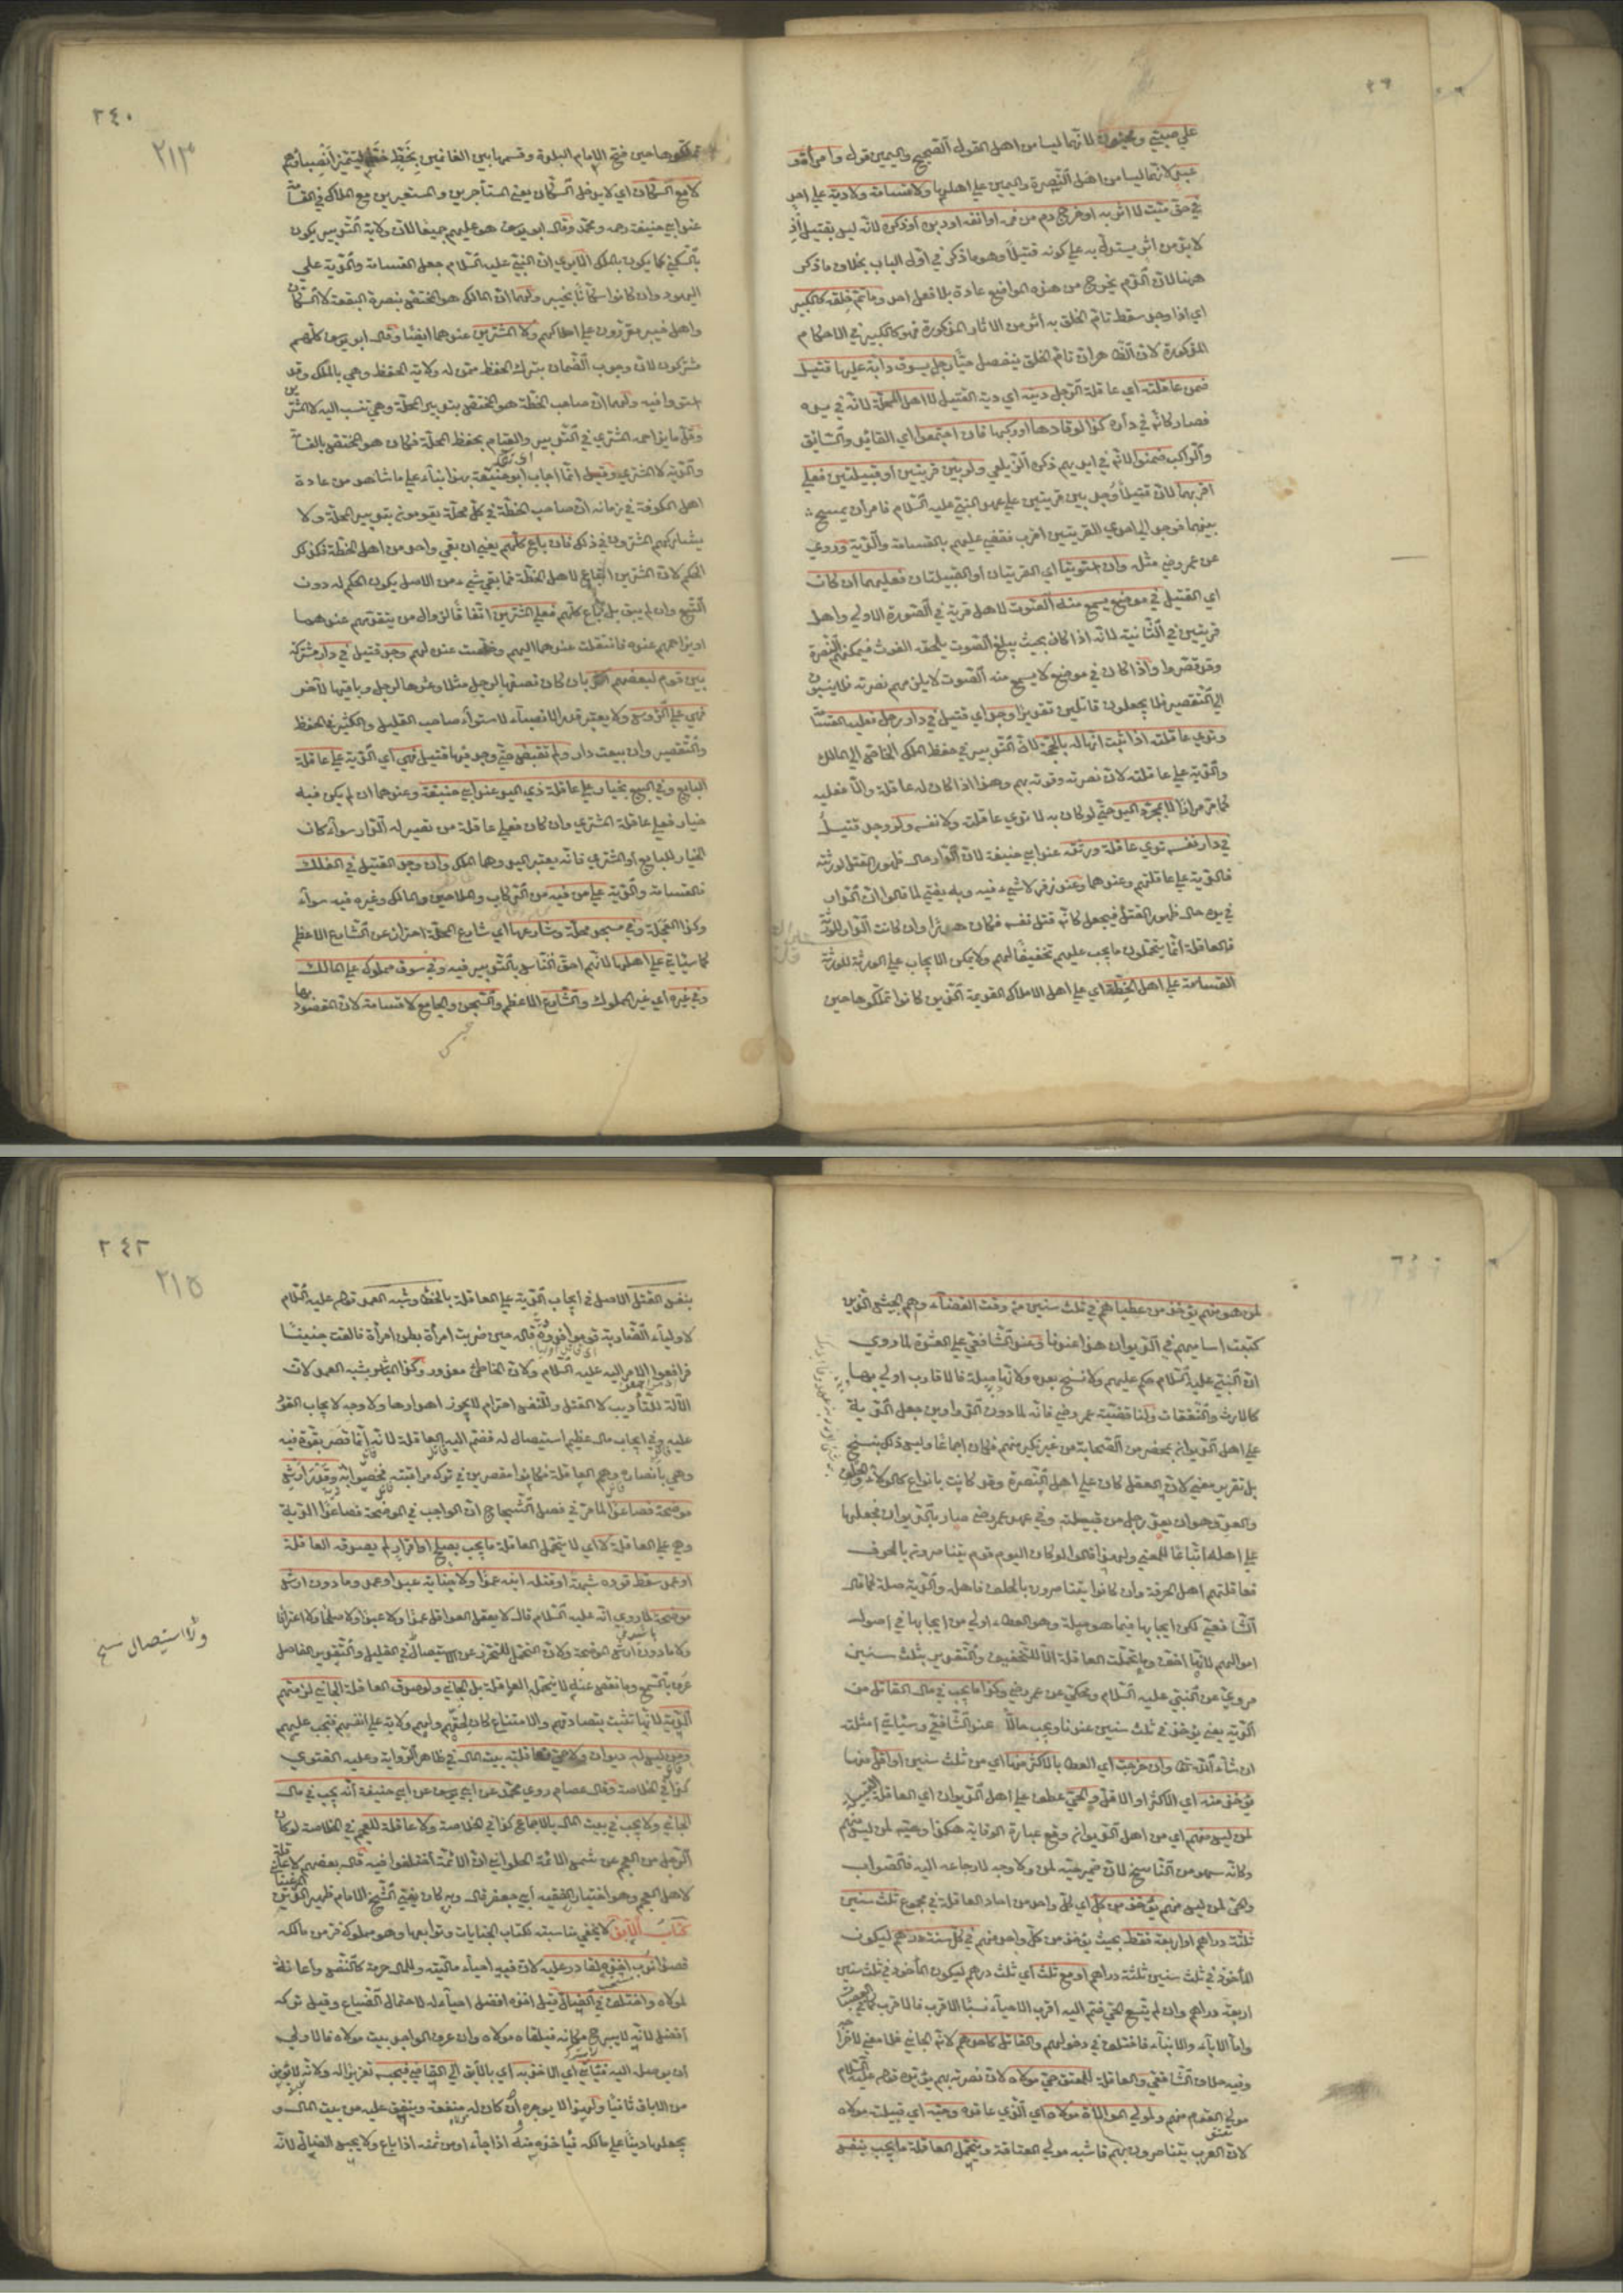 على صبي ومجنون لانهما ليسا من اهل القول الصحيح واليمين قول وامرأة و
عبد لانهما ليسا من اهل النصرة واليمين على اهلها ولا قسامة ولا دية على احد
في حق ميت لا اثر به او خرج دم من فمه او انفه او دبره او ذكره لانه ليس بقتيل اذ
لا بد من اثر يستدل به على كونه قتيلا وهو ما ذكر في اول الباب بخلاف ما ذكر
ههنا لان الدم يخرج من هذه المواضع عادة بلا فعل احد وما تم خلقه كالكبير
اي اذا وجد سقط تام الخلق به اثر من الآثار المذكورة فهو كالكبير في الاحكام
المذكورة لان الظاهر ان تام الخلق ينفصل حيا رجل يسوق دابة عليها قتيل
ضمن عاقلته اي عاقلة الرجل ديته اي دية القتيل لا اهل المحلة لانه في يده
فصار كانه في داره كذا لو قادها او ركبها فان اجتمعوا اي القائد والسائق
والراكب ضمنوا لانه في ايديهم ذكره الزيلعي ولو بين قريتين او قبيلتين فعلى
اقربهما لان قتيلا وجد بين قريتين على عهد النبي عليه السلام فامر ان يمسح
بينهما فوجد الى احدى القريتين اقرب فقضى عليهم بالقسامة والدية وروي
عن عمر رضي مثله وان استويتا اي القريتان او القبيلتان فعليهما ان كان
اي القتيل في موضع يسمع منه الصوت لاهل قرية في الصورة الاولى واهل
قريتين في الثانية لانه اذا كان بحيث يبلغ الصوت يلحقه الغوث فيمكنهم النصرة
وقد قصروا واذا كان في موضع لا يسمع منه الصوت لا يلزمهم نصرته فلا ينسبون
الى التقصير فلا يجعلون قاتلين تقديرا وجد اي قتيل في دار رجل فعليه القسامة
وتدي عاقلته اذا ثبت انها له بالحجة لان التدبير في حفظ الملك الخاص الى المالك
والدية على عاقلته لان نصرته وقوته بهم وهذا اذا كان له عاقلة والا فعليه
كما مر مرارا لا بمجرد اليد حتى لو كان به لا تدي عاقلته ولا نفسه ولو وجد قتيل
في دار نفسه تدي عاقلة ورثته عند ابي حنيفة لان الدار حال ظهور القتل لورثته
فالدية على عاقلتهم وعندهما وعند زفر لا شيء فيه وبه يفتى لما قالوا ان الدار
في يده حال ظهور القتل فيجعل كانه قتل نفسه فكان هدرا وان كانت الدار للورثة
فالعاقلة انما يتحملون ما يجب عليهم تخفيفا لهم ولا يمكن الايجاب على الورثة للورثة
القسامة على اهل الخطة اي على اهل الاملاك القديمة الذين كانوا تملكوها حين
٢٤٠
٢١٣
تملكوها حين فتح الامام البلدة وقسمها بين الغانمين بخط خطه ليتميز انصباؤهم
لا مع السكان اي لا يدخل السكان يعني المستأجرين والمستعيرين مع الملاك في القسامة
عند ابي حنيفة رحمه ومحمد وقال ابو يوسف هو عليهم جميعا لان ولاية التدبير يكون
بالسكنى كما يكون بالملك الا يرى ان النبي عليه السلام جعل القسامة والدية على
اليهود وان كانوا سكانا بخيبر ولهما ان المالك هو المختص بنصرة البقعة لا السكان
واهل خيبر مقررون على املاكهم ولا المشترين عندهما ايضا وقال ابو يوسف كلهم
مشتركون لان وجوب الضمان بترك الحفظ ممن له ولاية الحفظ وهي بالملك وقد
استووا فيه ولهما ان صاحب الخطة هو المختص بتدبير المحلة وهي تنسب اليه لا المشترين
وقل ما يزاحمه المشتري في التدبير والقيام بحفظ المحلة فكان هو المختص بالقسامة
والدية لا المشتري وقيل انما اجاب ابو حنيفة بهذا بناء على ما شاهد من عادة
اهل الكوفة في زمانه ان صاحب الخطة في كل محلة يقومون بتدبير المحلة ولا
يشاركهم المشترون في ذلك فان باع كلهم يعني ان بقي واحد من اهل الخطة فكذلك
الحكم لان المشترين اتباع لاهل الخطة فما بقي شيء من الاصل يكون الحكم له دون
التبع وان لم يبق بل باع كلهم فعلى المشترين اتفاقا لزوال من يتقدمهم عندهما
او يزاحمهم عنده فانتقلت عندهما اليهم وخلصت عنده لهم وجد قتيل في دار مشتركة
بين قوم لبعضهم اكثر بان كان نصفها لرجل مثلا وعشرها لرجل وباقيها لآخر
فهي على الرؤس ولا يعتبر قدر الانصباء لاستواء صاحب القليل والكثير في الحفظ
والتقصير وان بيعت دار ولم تقبض حتى وجد فيها قتيل فهي اي الدية على عاقلة
البايع وفي البيع بخيار على عاقلة ذي اليد عند ابي حنيفة وعندهما ان لم يكن فيه
خيار فعلى عاقلة المشتري وان كان فعلى عاقلة من تصير له الدار سواء كان
الخيار للبايع او المشتري فانه يعتبر اليد وهما الملك وان وجد القتيل في الفلك
فالقسامة والدية على من فيه من الركاب والملاحين والمالك وغيره فيه سواء
وكذا العجلة وفي مسجد محلة وشارعها اي شارع المحلة احتراز عن الشارع الاعظم
كما سيأتي على اهلها لانهم احق الناس بالتدبير فيه وفي سوق مملوك على المالك
وفي غيره اي غير المملوك والشارع الاعظم والسجن والجامع لا قسامة لان المقصود بها
لمن هو منهم يؤخذ من عطياهم في ثلث سنين من وقت القضاء وهم الجيش الذين
كتبت اساميهم في الديوان هذا عندنا وعند الشافعي على العشيرة لما روي
ان النبي عليه السلام حكم عليهم ولا نسخ بعده ولانها صلة فالاقارب اولى بها
كالارث والنفقات ولنا قضية عمر رضي فانه لما دون الدواوين جعل الدية
على اهل الديوان بمحضر من الصحابة من غير نكير منهم فكان اجماعا وليس ذلك بنسخ
بل تقرير معنى لان العقل كان على اهل النصرة وقد كانت بانواع كالولاء والحلف
والعد وهو ان يعد رجل من قبيلته وفي عهد عمر رضي صار بالديوان فجعلها
على اهله اتباعا للمعنى ولهذا قالوا لو كان اليوم قوم يتناصرون بالحرف
فعاقلتهم اهل الحرفة وان كانوا يتناصرون بالحلف فاهله والدية صلة كما قال
الشافعي لكن ايجابها فيما هو صلة وهو العطاء اولى من ايجابها في اصول
اموالهم لانها اخف وما تحملت العاقلة الا للتخفيف والتقدير بثلث سنين
مروي عن النبي عليه السلام ويحكى عن عمر رضي وكذا ما يجب في مال القاتل من
الدية يعني يؤخذ في ثلث سنين عندنا ويجب حالا عند الشافعي وسيأتي امثلته
ان شاء الله تعالى وان خرجت اي العطايا لاكثر منها اي من ثلث سنين او اقل منها
يؤخذ منه اي الاكثر او الاقل والحي عطف على اهل الديوان اي العاقلة
لمن ليس منهم اي من اهل الديوان وقع عبارة الوقاية هكذا وحيه لمن ليس منهم
وكانه سهو من الناسخ لان ضمير حيه لمن ولا وجه لارجاعه اليه فالصواب
والحي لمن ليس منهم يؤخذ من كل اي كل واحد من احاد العاقلة في مجموع ثلث سنين
ثلثة دراهم او اربعة فقط بحيث يؤخذ من كل واحد منهم في كل سنة درهم ليكون
المأخوذ في ثلث سنين ثلثة دراهم او مع ثلث اي ثلث درهم ليكون المأخوذ في ثلث سنين
اربعة دراهم وان لم يتسع الحي ضم اليه اقرب الاحياء نسبا الاقرب فالاقرب كما في العصبات
واما الآباء والابناء فاختلف في دخولهم والقاتل كاحدهم لانه الجاني فلا معنى لاخراجه
وفيه خلاف الشافعي والعاقلة للمعتق حي مولاه لان نصرته بهم يؤيده قوله عليه السلام
مولى القوم منهم ولمولى الموالاة مولاه اي الذي عاقده وحيه اي قبيلة مولاه
لان العرب يتناصرون بهم فاشبه مولى العتاقة ويتحمل العاقلة ما يجب بنفس
٢٤٢
٢١٥
بنفس القتل الاصل في ايجاب الدية على العاقلة بالخطأ وشبه العمد قوله عليه السلام
لاولياء الضاربة قوموا فدوه قاله حين ضربت امرأة بطن امرأة فالقت جنينا
فرافعوا الامر اليه عليه السلام ولان الخاطئ معذور وكذا المباشر بشبه العمد لان
الآلة للتأديب لا القتل والنفس احترام لا يجوز اهدارها ولا وجه لايجاب القود
عليه وفي ايجاب مال عظيم استيصال له فضم اليه العاقلة لانه انما قصر بقوة فيه
وهي بانصاره وهم العاقلة فكانوا مقصرين في تركه مراقبته فخصوا به وقدر ارش
موضحة فصاعدا لما مر في فصل الشجاج ان الواجب في الموضحة فصاعدا الدية
وهي على العاقلة لا اي لا يتحمل العاقلة ما يجب بصلح او اقرار لم يصدقه العاقلة
او عمد سقط قوده بشبهة او قتله ابنه عمدا ولا جناية عبد او عمد وما دون ارش
موضحة لما روي انه عليه السلام قال لا يعقل العواقل عمدا ولا عبدا ولا صلحا ولا اعترافا
ولا ما دون ارش الموضحة ولان التحمل للتحرز عن الاستيصال في القليل والتقدير الفاصل
عرف بالسمع وما نقص عنه لا يتحمل العاقلة بل الجاني ولو صدق العاقلة الجاني لزمتهم
الدية لانها تثبت بتصادقهم والامتناع كان لحقهم ولهم ولاية على انفسهم فتجب عليهم
ومن ليس له ديوان ولا حي فعاقلته بيت المال في ظاهر الرواية وعليه الفتوى
كذا في الخلاصة وقال عصام روى محمد عن ابي يوسف عن ابي حنيفة انه يجب في مال
الجاني ولا يجب في بيت المال بالاجماع كذا في الخلاصة ولا عاقلة للعجم في الخلاصة لو كان
الرجل من العجم عن شمس الائمة الحلواني ان الائمة اختلفوا فيه قال بعضهم لا عاقلة
لاهل العجم وهو اختيار الفقيه ابي جعفر قال وبه كان يفتي الشيخ الامام ظهير الدين المرغيناني
كتاب الآبق لا يخفى مناسبته لكتاب الجنايات وتوابعها وهو مملوك فر من مالكه
قصدا ندب اخذه لقادر عليه لان فيه احياء ماليته وللمال حرمة كالنفس واعانة
لمولاه واختلف في الضال قيل اخذه افضل احياء له لاحتمال الضياع وقيل تركه
افضل لانه لا يبرح مكانه فيلقاه مولاه وان عرف الواجد بيت مولاه فالاولى
ان يوصله اليه فيأتي اي الآخذ به اي بالآبق الى القاضي فيحبسه تعزيرا له ولانه لا يؤمن
من الاباق ثانيا ولهذا لا يوجره ان كان له منفعة وينفق عليه من بيت المال و
يجعلها دينا على مالكه فيأخذه منه اذا جاء او من ثمنه اذا باع ولا يحبس الضال لانه
ولا استيصال نسخ